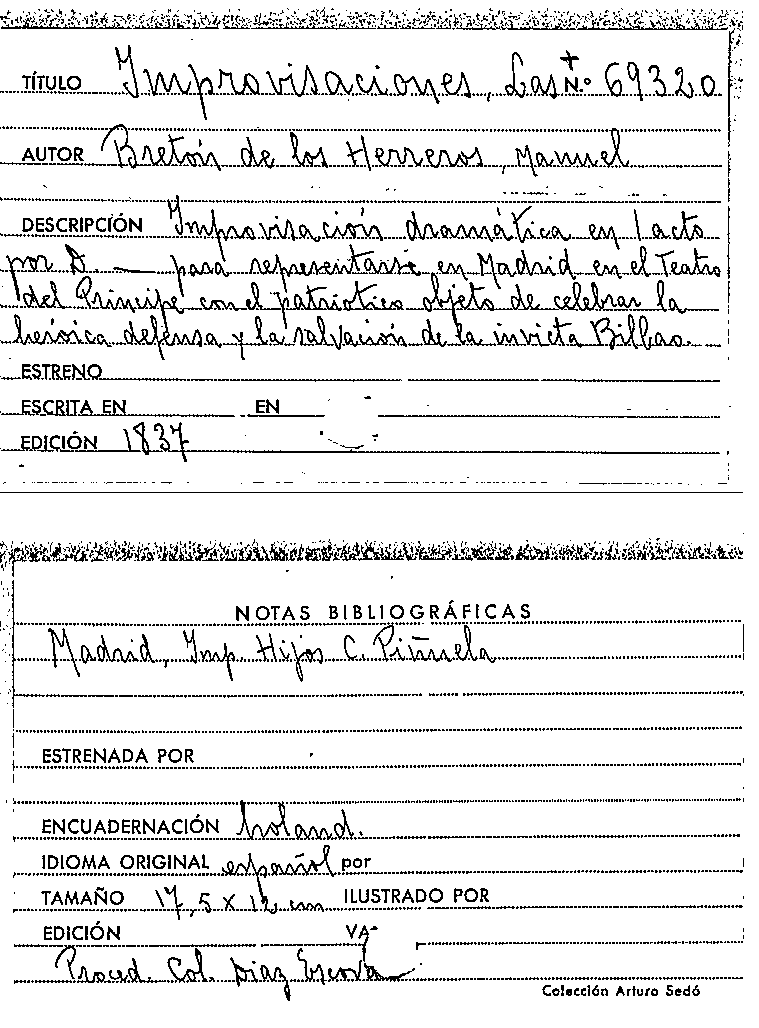 TÍTULO Improvisaciones, Las N.º 69320
AUTOR Bretón de los Herreros, Manuel
DESCRIPCIÓN Improvisación dramática en 1 acto
por D. — para representarse en Madrid en el Teatro
del Príncipe con el patriótico objeto de celebrar la
heróica defensa y la salvación de la invicta Bilbao.
ESTRENO
ESCRITA EN EN
EDICIÓN 1837
NOTAS BIBLIOGRÁFICAS
Madrid, Imp. Hijos C. Piñuela
ESTRENADA POR
ENCUADERNACIÓN holand.
IDIOMA ORIGINAL español por
TAMAÑO 17,5 x 12 cm ILUSTRADO POR
EDICIÓN VA
Proced. Col. Díaz Escovar
Colección Arturo Sedó